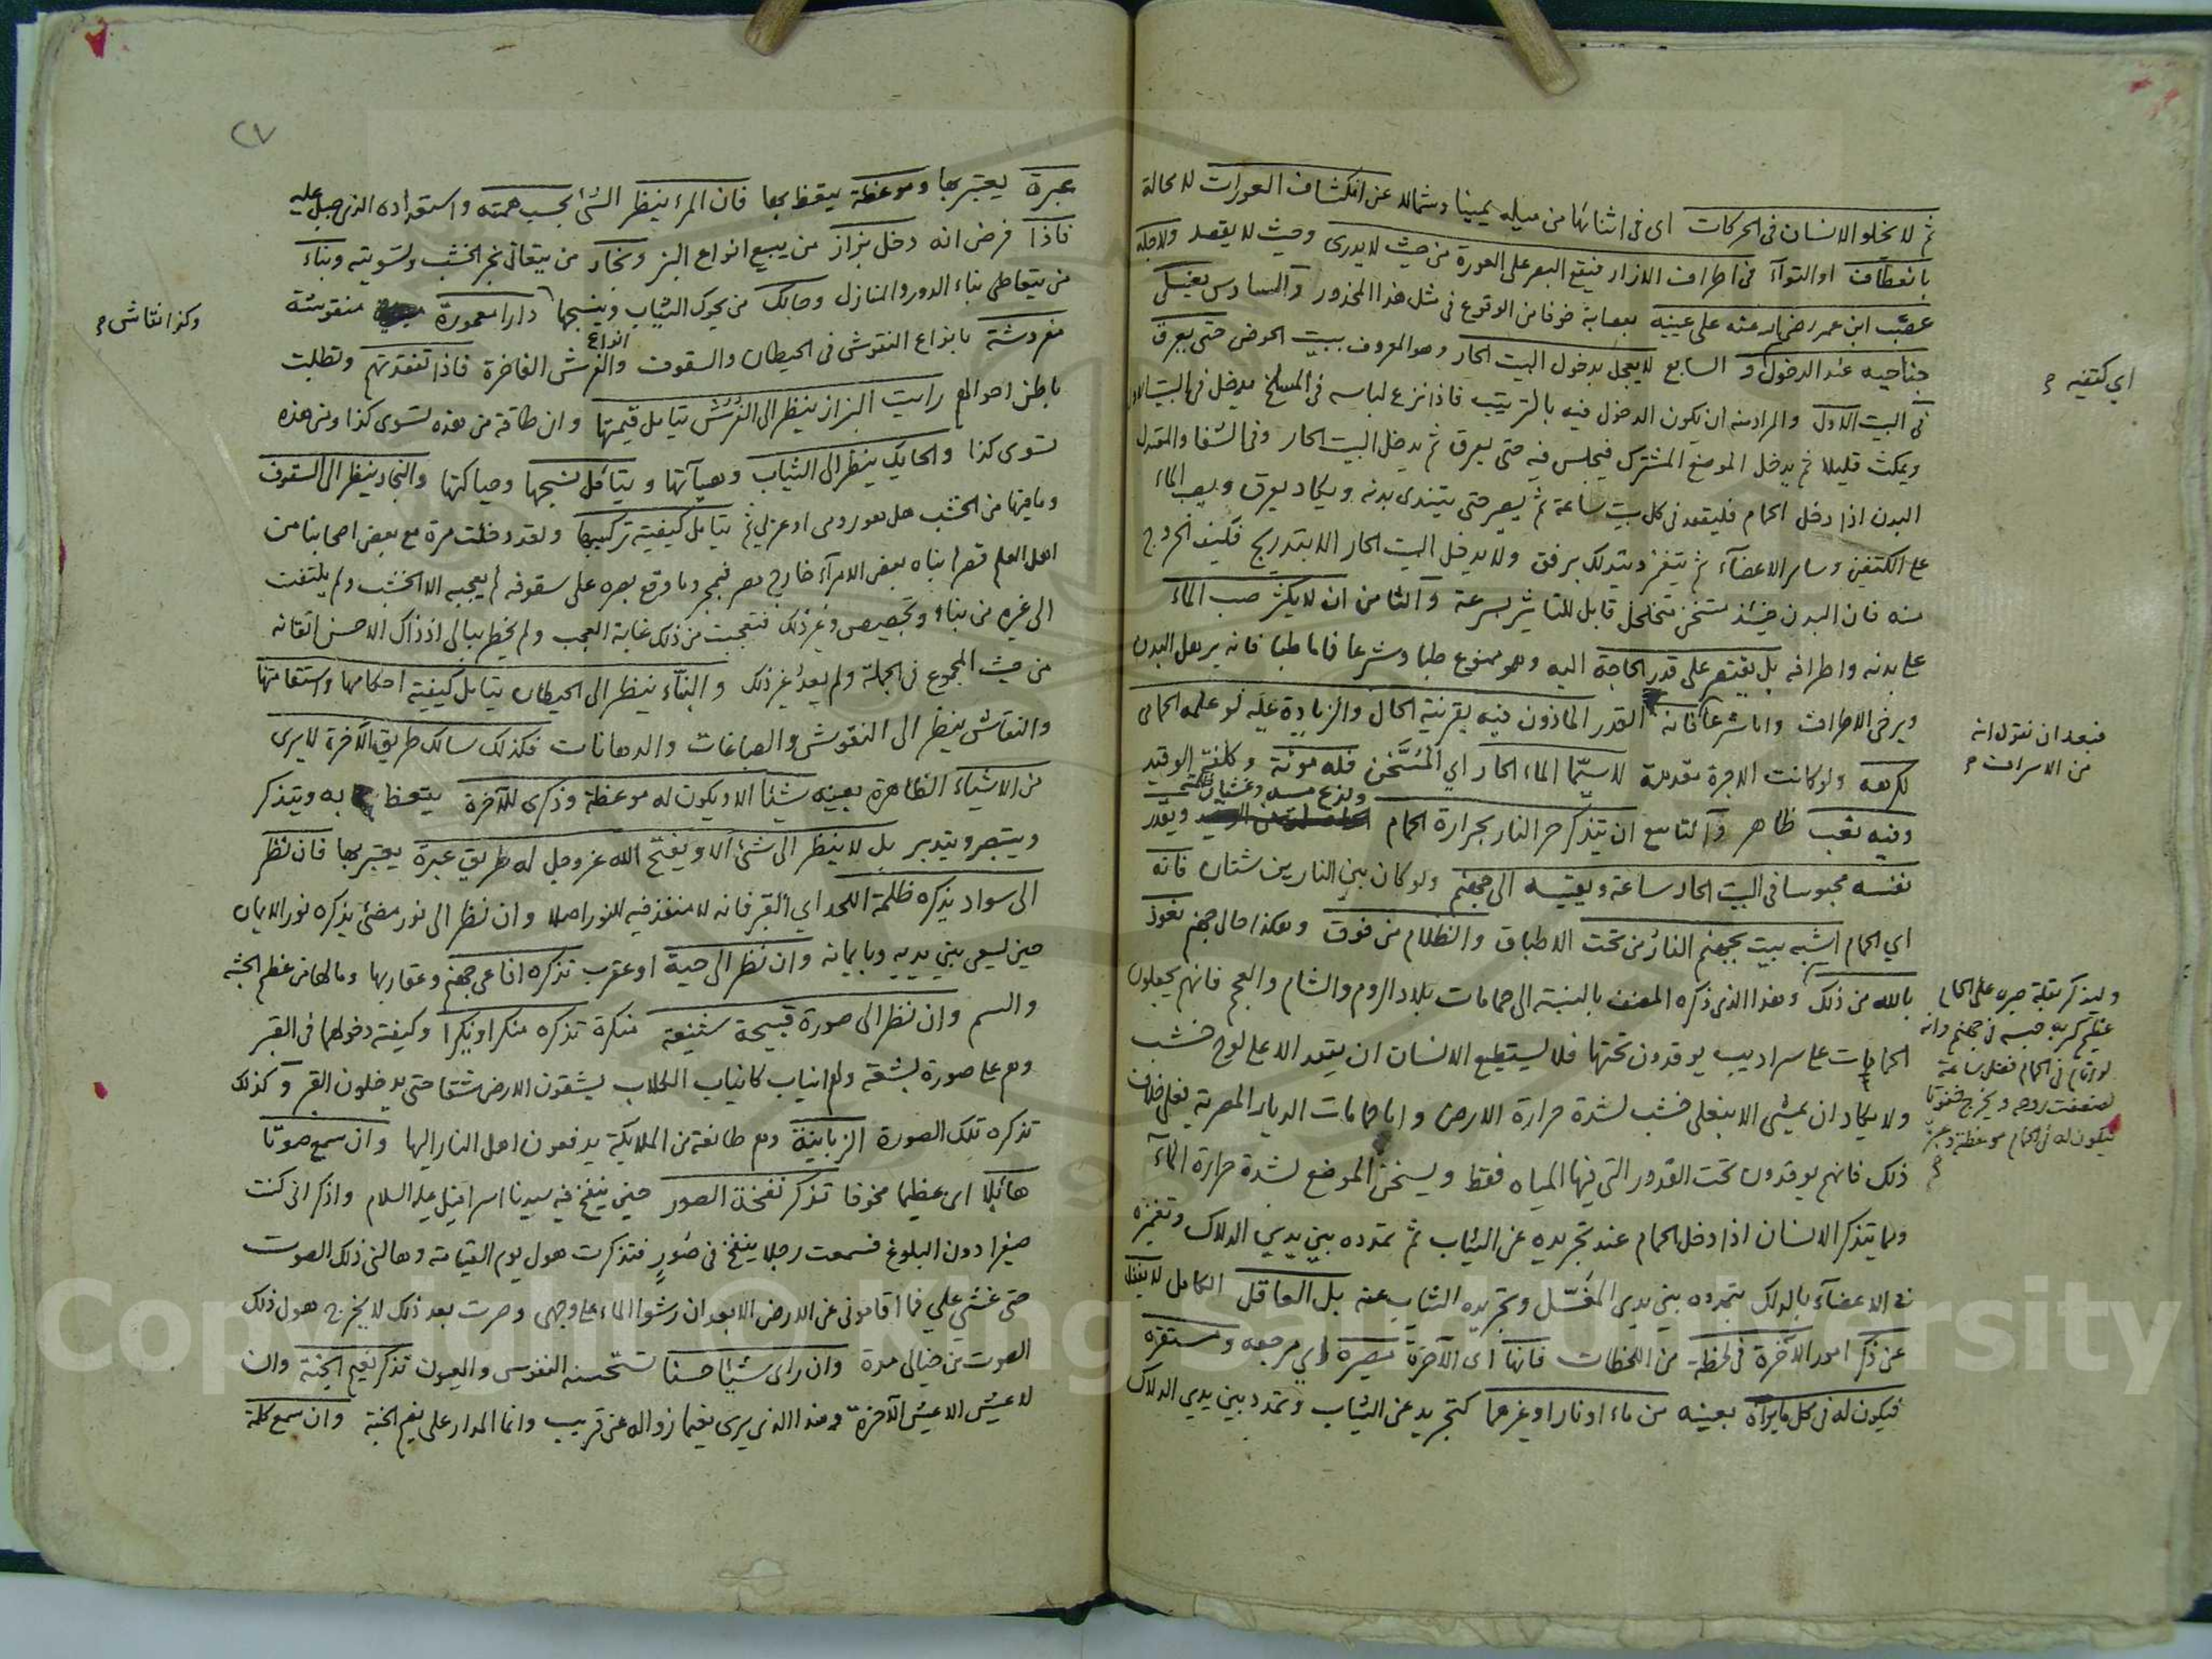 ثم لا يخلو الانسان فى الحركات اى فى اثنائها من ميله يمينا وشمالا عن انكشاف العورات لا محالة
بانعطاف او التوآء فى اطراف الازار فيقع البصر على العورة من حيث لا يدرى وحيث لا يقصد ولاجله
عصّب ابن عمر رضى الله عنه على عينيه بعصابة خوفا من الوقوع فى مثل هذا المحذور والسادس يغسل
جناحيه عند الدخول و السابع لا يعجل بدخول البيت الحار وهو المعروف ببيت الحوض حتى يعرق
فى البيت الاول والمراد منه ان يكون الدخول فيه بالترتيب فاذا نزع لباسه فى المسلخ يدخل فى البيت الاول
ويمكث قليلا ثم يدخل الموضع المشترك فيجلس فيه حتى يعرق ثم يدخل البيت الحار وفى الشفا والمعتدل
البدن اذا دخل الحمام فليقعد فى كل بيت ساعة ثم يصبر حتى يتندى بدنه ويكاد يعرق ويصب الماء
على الكتفين وساير الاعضآء ثم يتغمز ويتدلك برفق ولا يدخل البيت الحار الا بتدريج فكيف الخروج
منه فان البدن حينئذ متسخن متخلخل قابل للتاثير بسرعة والثامن ان لا يكثر صب المآء
على بدنه واطرافه بل يقتصر على قدر الحاجة اليه وهو ممنوع طبا وشرعا فاما طبا فانه يرهل البدن
ويرخى الاطراف واما شرعا فانه القدر الماذون فيه بقرينة الحال والزيادة عليه لو علمه الحمامى
لكرهه ولو كانت الاجرة مقدمة لا سيّما الماء الحار اي المسّخن فله مونة وكلفة الوقيد
وفيه تعب ظاهر والتاسع ان يتذكر حر النار بحرارة الحمام ويقدر
نفسه محبوسا فى البيت الحار ساعة ويقيسه الى جهنم ولو كان بين النارين شتان فانه
اي الحمام اشبه بيت بجهنم النار من تحت الاطباق والظلام من فوق وهكذا حال جهنم نعوذ
بالله من ذلك وهذا الذى ذكره المصنف بالنسبة الى حمامات بلاد الروم والشام والعجم فانهم يجعلون
الحمامات على سراديب يوقدون تحتها فلا يستطيع الانسان ان يقعد الا على لوح خشب
ولا يكاد ان يمشى الا بنعلى خشب لشدة حرارة الارض واما حمامات الديار المصرية فعلى خلاف
ذلك فانهم يوقدون تحت القدور التى فيها المياه فقط ويسخن الموضع لشدة حرارة المآء
ومما يتذكر الانسان اذا دخل الحمام عند تجريده عن الثياب ثم تمدده بين يدي الدلاك وتغميزه
فى الاعضآء بالدلك بتمدده بين يدى المغسّل وتجريده الثياب عنه بل العاقل الكامل لا يغفل
عن ذكر امور الآخرة فى لحظة من اللحظات فانها اى الآخرة مصيره اي مرجعه ومستقره
فيكون له فى كل ما يرآه بعينه من ماء او نار او غيرهما كتجريد عن الثياب وتمدد بين يدي الدلاك
اي كتفيه
فبعد ان نقول انه
من الاسراف
وليذكر بقلة صبره على الحمام
عظيم كربه حبسه فى جهنم وانه
لو اقام فى الحمام فضل ساعة
لضعفت روحه ويخرج مخنوقا
فيكون له فى الحمام موعظة وعبرة
٢٧
عبرة يعتبر بها وموعظة يتعظ بها فان المرء ينظر الشئ بحسب همته واستعداده الذى جبل عليه
فاذا فرض انه دخل بزاز من يبيع انواع البز ونجار من يتعانى نجر الخشب وتسويته وبناء
من يتعاطى بناء الدور والمنازل وحايك من يحوك الثياب وينسجها دارا معمورة منقوشة
مفروشة بانواع النقوش فى الحيطان والسقوف وانواع الفرش الفاخرة فاذا تفقدتهم وتطلبت
باطن احوالهم رايت البزاز ينظر الى الفرش يتامل قيمتها وان طاقة من هذه تسوى كذا ومن هذه
تسوى كذا والحايك ينظر الى الثياب وهيآتها ويتأمل نسجها وحياكتها والنجار ينظر الى السقوف
وما فيها من الخشب هل هو رومى او عزيلي ثم يتامل كيفية تركيبها ولقد دخلت مرة مع بعض اصحابنا من
اهل العلم قصرا بناه بعض الامرآء خارج مصر فبمجرد ما وقع بصره على سقوفه لم يعجبه الا الخشب ولم يلتفت
الى غيره من بناء وتجصيص وغير ذلك فتعجبت من ذلك غاية العجب ولم يخطر ببالى اذ ذاك الا حسن اتقانه
من حيث المجموع فى الجملة ولم يعد غير ذلك والبنّاء ينظر الى الحيطان يتامل كيفية احكامها واستقامتها
والنقاش ينظر الى النقوش والصباغات والدهانات فكذلك سالك طريق الآخرة لا يرى
من الاشياء الظاهرة بعينه شيئا الا ويكون له موعظة وذكرى للآخرة يتعظ به ويتذكر
ويتبصر ويتدبر بل لا ينظر الى شئ الا ويفتح الله عز وجل له طريق عبرة يعتبر بها فان نظر
الى سواد يذكره ظلمة اللحد اي القبر فانه لا منفذ فيه للنور اصلا وان نظر الى نور مضئ يذكره نور الايمان
حين يسعى بين يديه وبايمانه وان نظر الى حية او عقرب تذكره افاعى جهنم وعقاربها وما لها من عظم الجثه
والسم وان نظر الى صورة قبيحة شنيعة منكرة تذكره منكرا ونكيرا وكيفية دخولهما فى القبر
وهم على صورة بشعة ولهم انياب كانياب الكلاب يشقون الارض شقا حتى يدخلون القبر وكذلك
تذكره تلك الصورة الزبانية وهم طائفة من الملايكة يدفعون اهل النار اليها وان سمع صوتا
هائلا اى عظيما مخوفا تذكر نفخة الصور حين ينفخ فيه سيدنا اسرافيل عليه السلام واذكر انى كنت
صغيرا دون البلوغ فسمعت رجلا ينفخ فى صور فتذكرت هول يوم القيامة وهالنى ذلك الصوت
حتى غشى علي فما اقامونى عن الارض الا بعد ان رشوا الماء على وجهى وصرت بعد ذلك لا يخرج هول ذلك
الصوت من خيالى مدة وان راى شيئا حسنا تستحسنه النفوس والعيون تذكر نعيم الجنة وان
لا عيش الا عيش الآخرة وهذا الذى يرى نعيما زواله عن قريب وانما المدار على نعيم الجنة وان سمع كلمة
وكذا نقاش